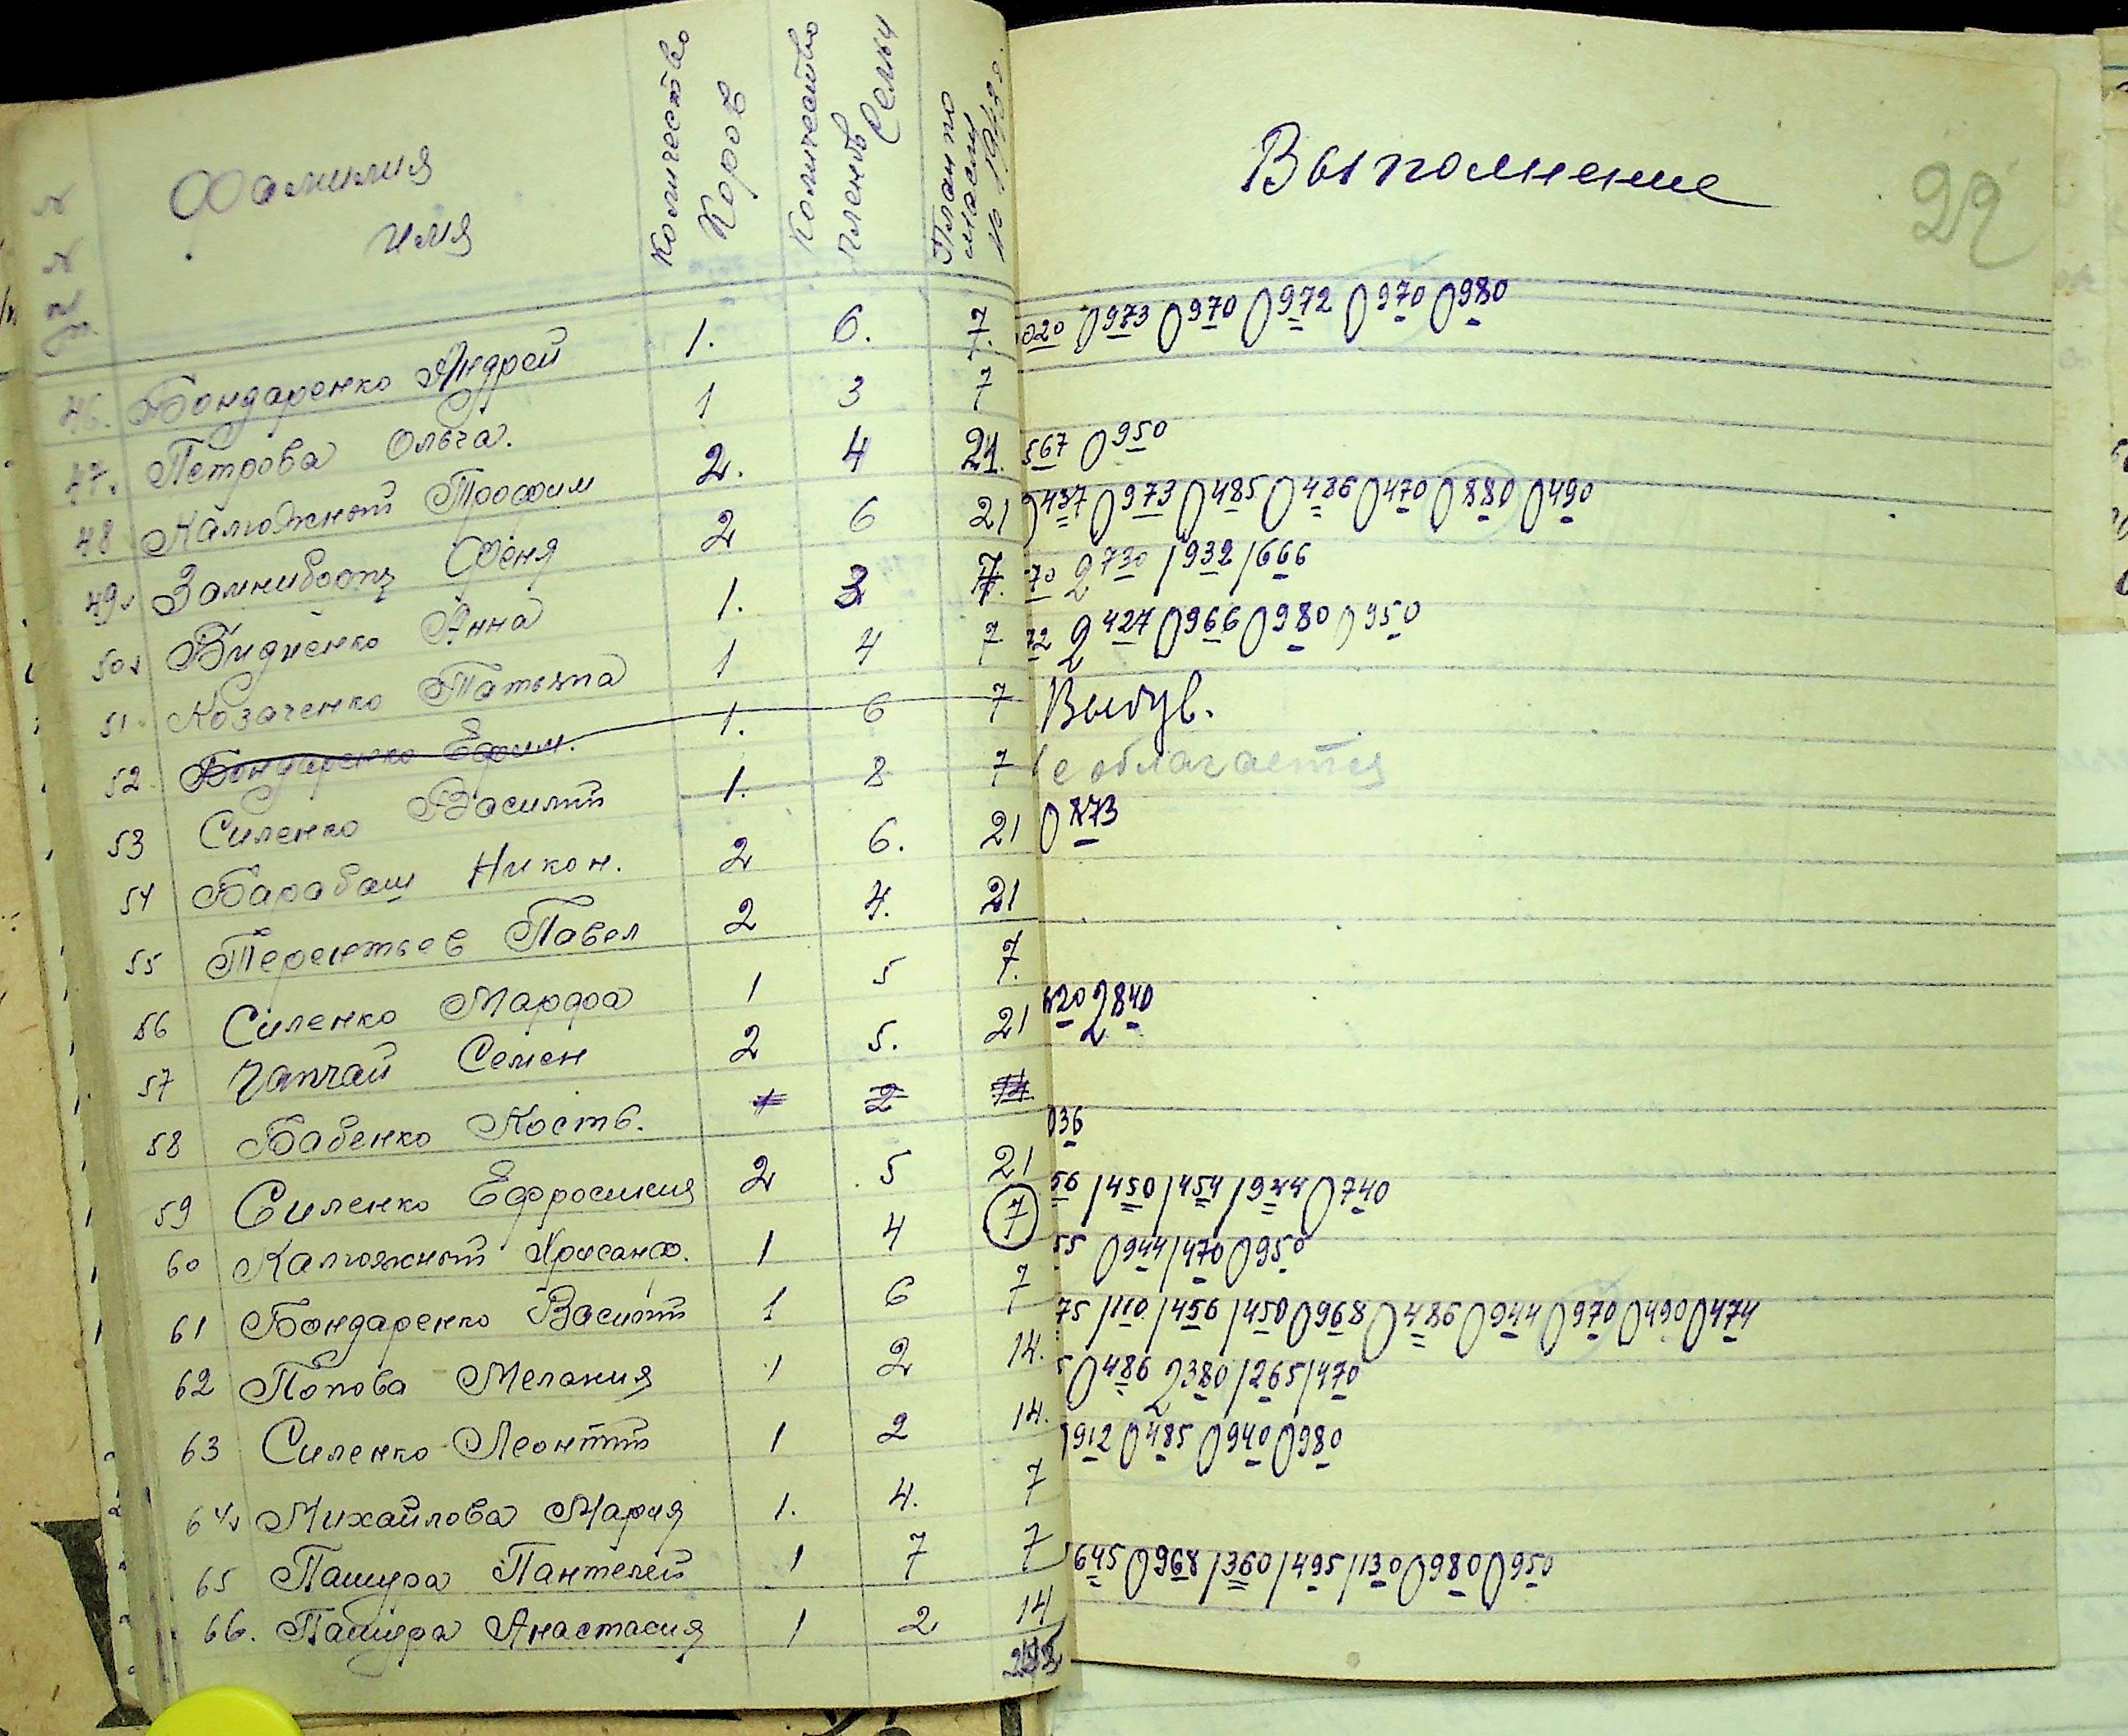 Фамилия имя Количество Коров Количество членов Семьи План по маслу Выполнение 22
46. Бондаренко Андрей 1. 6. 7. 020 0973 0970 0972 0970 0980
47. Петрова Ольга. 1 3 7
48 Калюжной Трофим 2. 4 21. 567 0950
49 Феня 2 6 21 0437 0973 0485 0486 0470 0880 0490
50 Видиенко Анна 1. 3 7. 70 2730 1932 1666
51 Козаченко Татьяна 1 4 7 72 2427 0966 0980 0950
52 Бондаренко Ефим. 1. 6 7 Выбув.
53 Силенко Василий 1. 8 7 Не облагается
54 Барабаш Никон. 2 6. 21 0873
55 Терентьев Павел 2 4. 21
56 Силенко Марфа 1 5 7.
57 Чапчай Семен 2 5. 21 520 2840
58 Бабенко Конст. 1 2 14
59 Силенко Ефросиния 2 5 21 036
60 Калюжной Хрисанф. 1 4 7 56 1450 1454 1944 0740
61 Бондаренко Василий 1 6 7 55 0944 1470 0950
62 Попова Мелания 1 2 14. 75 1110 1456 1450 0968 0486 0944 0970 0490 0474
63 Силенко Леонтий 1 2 14. 5 0486 2380 1265 1470
64 Михайлова Мария 1. 4. 7 0912 0485 0940 0980
65 Пашура Пантелей 1 7 7
66. Пашура Анастасия 1 2 14 1645 0968 1360 1495 1130 0980 0950